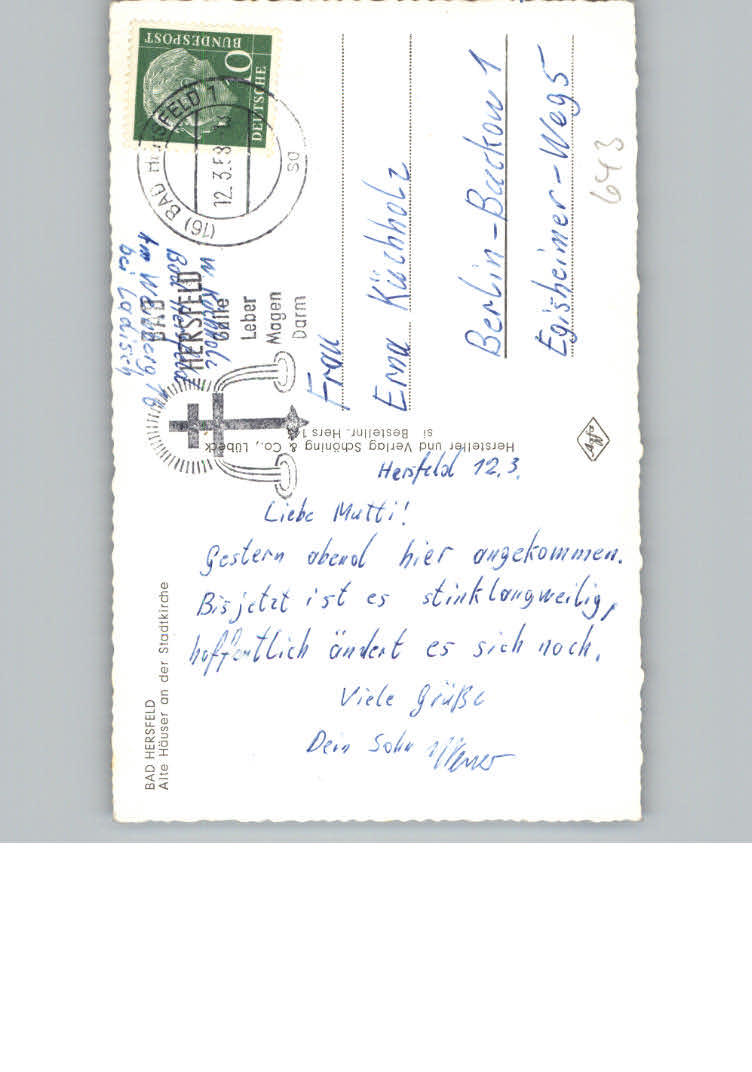 DEUTSCHE
BUNDESPOST
(16) BAD HERSFELD 1
12.3.58
so
BAD
HERSFELD
Galle
Leber
Magen
Darm
Bad Hersfeld
bei Ladisich
Frau
Erna Küchholz
Berlin-Buckow 1
Egisheimer-Weg 5
643
Hersteller und Verlag Schöning & Co., Lübeck
si Bestellnr. Hers
Hersfeld 12.3.
Liebe Mutti!
Gestern abend hier angekommen.
Bis jetzt ist es stinklangweilig,
hoffentlich ändert es sich noch.
Viele Grüße
Dein Sohn Werner
BAD HERSFELD
Alte Häuser an der Stadtkirche